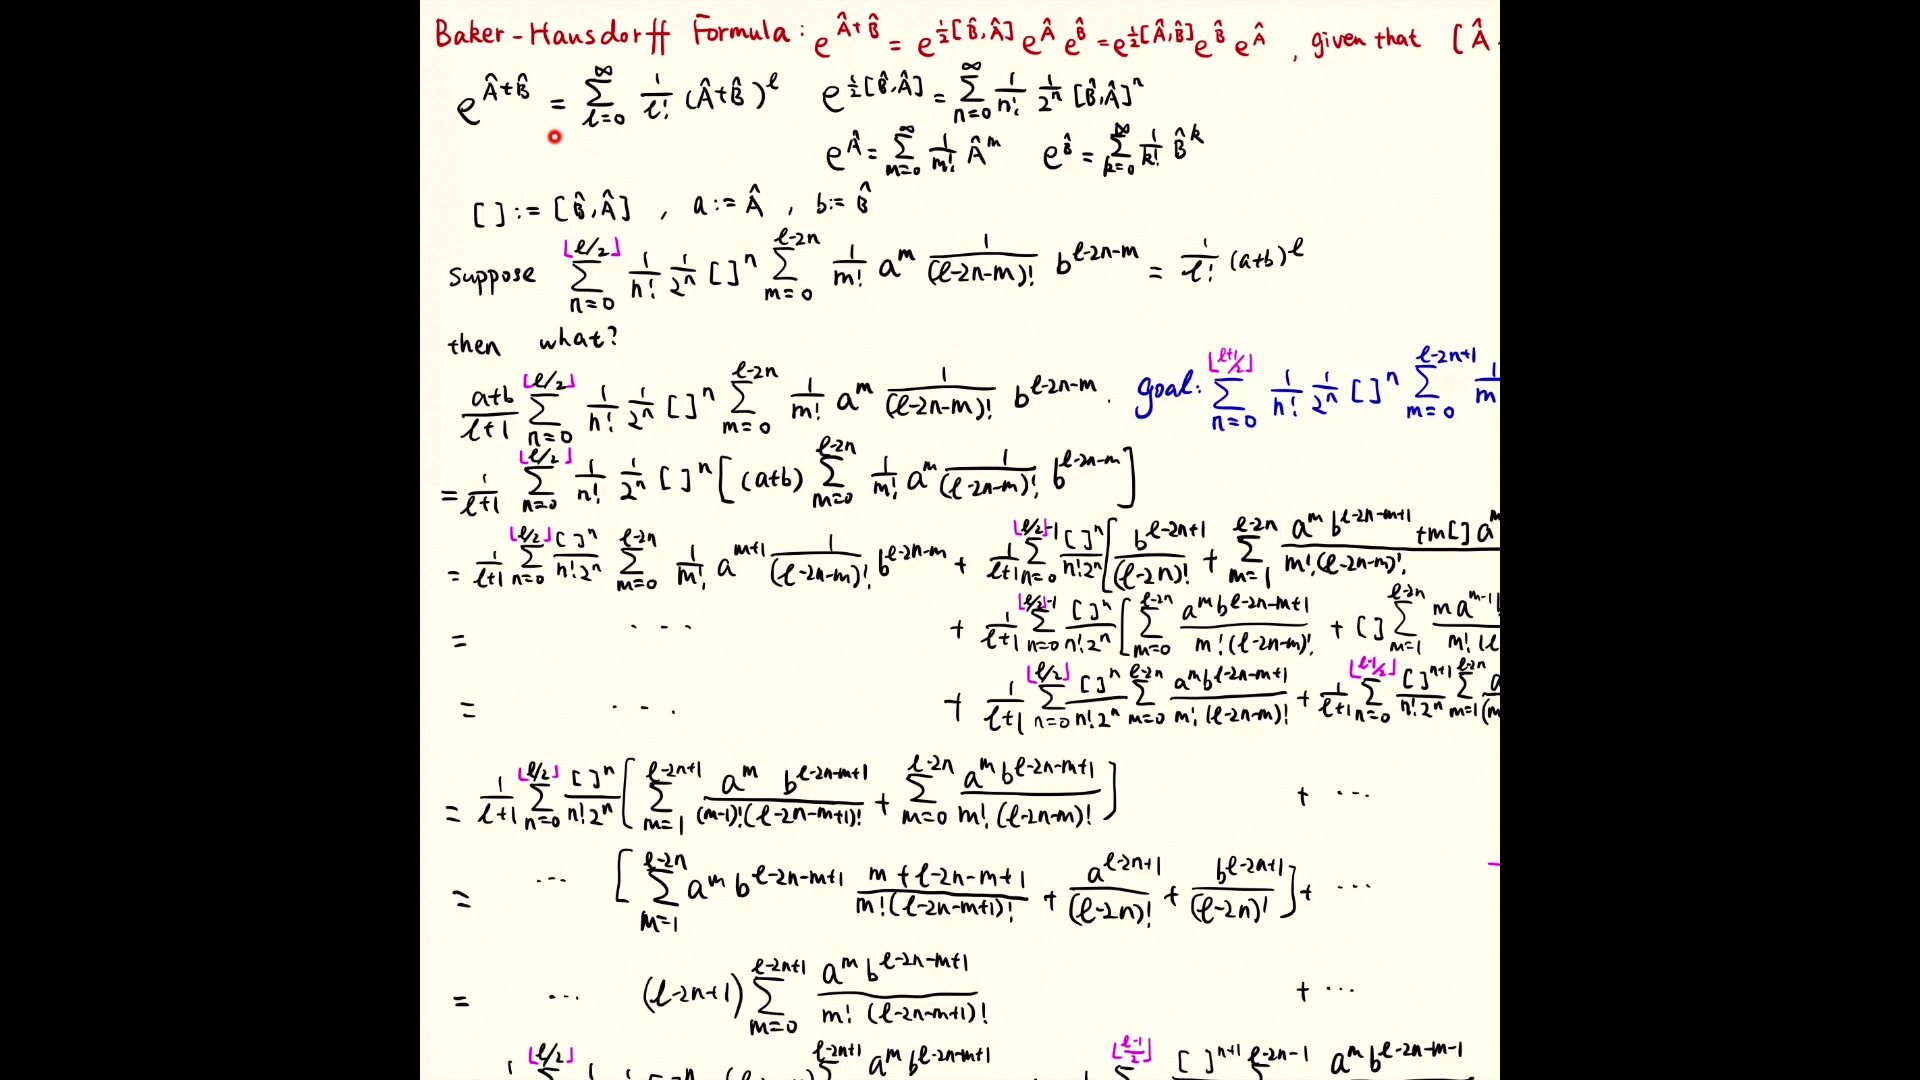 Baker-Hausdorff Formula: e^{Â+B̂} = e^{½[B̂,Â]} e^{Â} e^{B̂} = e^{½[Â,B̂]} e^{B̂} e^{Â} , given that [Â
e^{Â+B̂} = ∑_{ℓ=0}^{∞} 1/ℓ! (Â+B̂)^ℓ e^{½[B̂,Â]} = ∑_{n=0}^{∞} 1/n! 1/2^n [B̂,Â]^n
e^{Â} = ∑_{m=0}^{∞} 1/m! Â^m e^{B̂} = ∑_{k=0}^{∞} 1/k! B̂^k
[ ] := [B̂,Â] , a := Â , b := B̂
suppose ∑_{n=0}^{⌊ℓ/2⌋} 1/n! 1/2^n [ ]^n ∑_{m=0}^{ℓ-2n} 1/m! a^m 1/(ℓ-2n-m)! b^{ℓ-2n-m} = 1/ℓ! (a+b)^ℓ
then what?
(a+b)/(ℓ+1) ∑_{n=0}^{⌊ℓ/2⌋} 1/n! 1/2^n [ ]^n ∑_{m=0}^{ℓ-2n} 1/m! a^m 1/(ℓ-2n-m)! b^{ℓ-2n-m} . goal: ∑_{n=0}^{⌊ℓ+1/2⌋} 1/n! 1/2^n [ ]^n ∑_{m=0}^{ℓ-2n+1} 1/m
= 1/(ℓ+1) ∑_{n=0}^{⌊ℓ/2⌋} 1/n! 1/2^n [ ]^n [(a+b) ∑_{m=0}^{ℓ-2n} 1/m! a^m 1/(ℓ-2n-m)! b^{ℓ-2n-m}]
= 1/(ℓ+1) ∑_{n=0}^{⌊ℓ/2⌋} [ ]^n/(n!2^n) ∑_{m=0}^{ℓ-2n} 1/m! a^{m+1} 1/(ℓ-2n-m)! b^{ℓ-2n-m} + 1/(ℓ+1) ∑_{n=0}^{⌊ℓ/2⌋-1} [ ]^n/(n!2^n) [b^{ℓ-2n+1}/(ℓ-2n)! + ∑_{m=1}^{ℓ-2n} (a^m b^{ℓ-2n-m+1} + m[ ]a^m)/(m!(ℓ-2n-m)!)
= ... + 1/(ℓ+1) ∑_{n=0}^{⌊ℓ/2⌋-1} [ ]^n/(n!2^n) [∑_{m=0}^{ℓ-2n} a^m b^{ℓ-2n-m+1}/(m!(ℓ-2n-m)!) + [ ] ∑_{m=1}^{ℓ-2n} m a^{m-1}/(m!(ℓ
= ... + 1/(ℓ+1) ∑_{n=0}^{⌊ℓ/2⌋} [ ]^n/(n!2^n) ∑_{m=0}^{ℓ-2n} a^m b^{ℓ-2n-m+1}/(m!(ℓ-2n-m)!) + 1/(ℓ+1) ∑_{n=0}^{⌊ℓ-1/2⌋} [ ]^{n+1}/(n!2^n) ∑_{m=1}^{ℓ-2n} a/(m
= 1/(ℓ+1) ∑_{n=0}^{⌊ℓ/2⌋} [ ]^n/(n!2^n) [∑_{m=1}^{ℓ-2n+1} a^m b^{ℓ-2n-m+1}/((m-1)!(ℓ-2n-m+1)!) + ∑_{m=0}^{ℓ-2n} a^m b^{ℓ-2n-m+1}/(m!(ℓ-2n-m)!)] + ...
= ... [∑_{m=1}^{ℓ-2n} a^m b^{ℓ-2n-m+1} (m+ℓ-2n-m+1)/(m!(ℓ-2n-m+1)!) + a^{ℓ-2n+1}/(ℓ-2n)! + b^{ℓ-2n+1}/(ℓ-2n)!] + ...
= ... (ℓ-2n+1) ∑_{m=0}^{ℓ-2n+1} a^m b^{ℓ-2n-m+1}/(m!(ℓ-2n-m+1)!) + ...
⌊ℓ/2⌋ ℓ-2n+1 a^m b^{ℓ-2n-m+1} ⌊ℓ-1/2⌋ [ ]^{n+1} ℓ-2n-1 a^m b^{ℓ-2n-m-1}